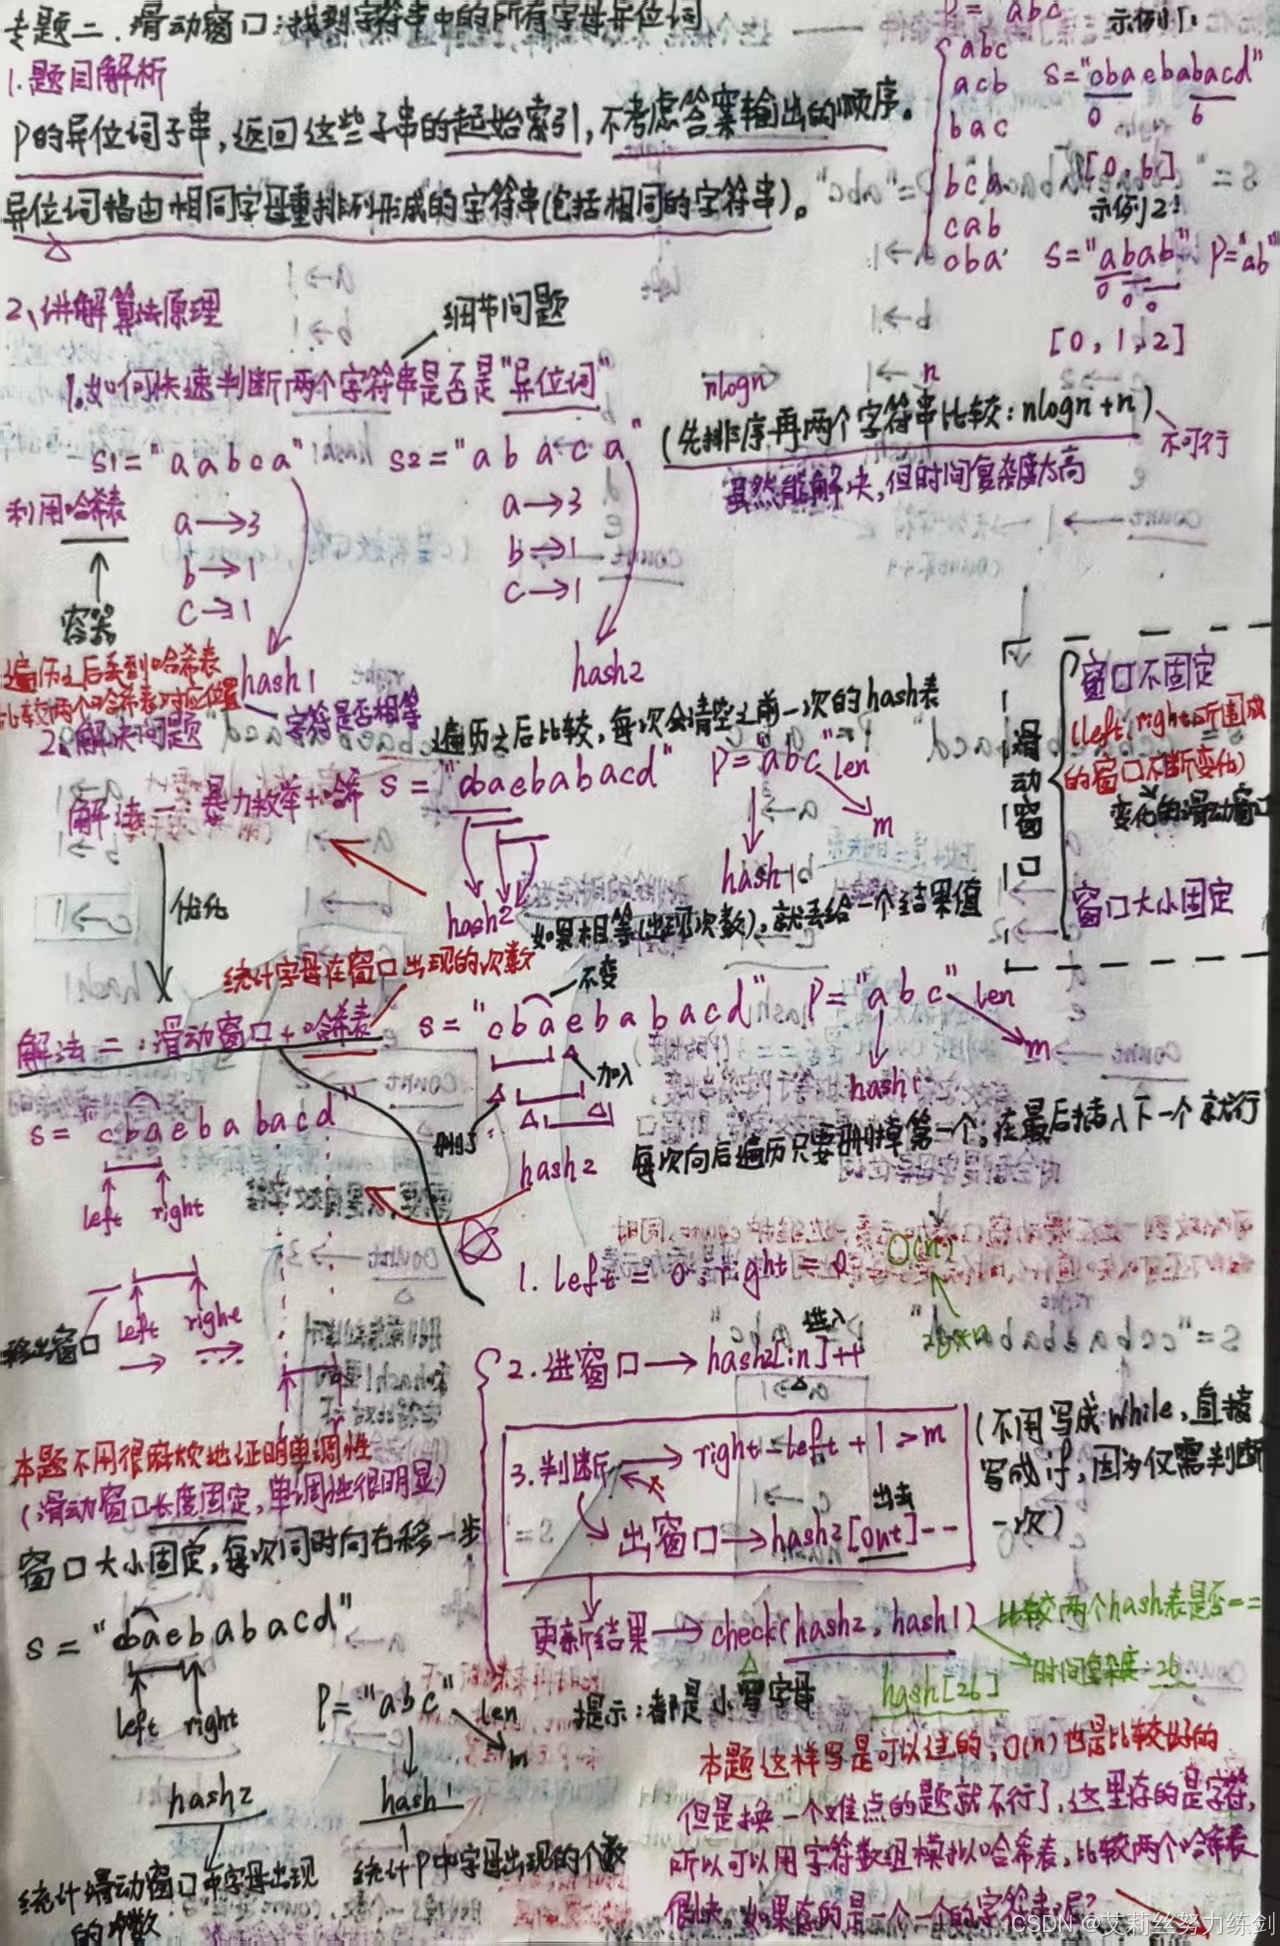 专题二.滑动窗口:找到字符串中的所有字母异位词
P = abc
1.题目解析
P的异位词子串,返回这些子串的起始索引,不考虑答案输出的顺序。
异位词指由相同字母重排列形成的字符串(包括相同的字符串)。
abc
acb
bac
bca
cab
cba
示例1:
S="cbaebabacd"
0 6
[0,6]
示例2:
S="abab" P="ab"
0 0 0
[0,1,2]
2、讲解算法原理
细节问题
1.如何快速判断两个字符串是否是"异位词"
S1="aabca" S2="abaca"
nlogn n
(先排序再两个字符串比较:nlogn+n)
不可行
虽然能解决,但时间复杂度太高
利用哈希表
容器
a→3
b→1
c→1
a→3
b→1
c→1
hash1
hash2
遍历之后丢到哈希表
比较两个哈希表对应位置
字符是否相等
2、解决问题
遍历之后比较,每次会清空之前一次的hash表
解法一:暴力枚举+哈
S="cbaebabacd" P="abc" len
m
hash1
hash2
如果相等(出现次数),就丢给一个结果值
优化
滑动窗口
窗口不固定
(left,right所围成
的窗口不断变化)
变化的滑动窗口
窗口大小固定
统计字母在窗口出现的次数
不变
解法二:滑动窗口+哈希表
S="cbaebabacd" P="abc" len
m
hash1
加入
删除
hash2
每次向后遍历只要删掉第一个,在最后插入下一个就行
S="cbaebabacd"
left right
移出窗口
left right
1. left = 0, right = 0
O(n)
进入
2.进窗口→hash2[in]++
3.判断→right-left+1>m
出去
出窗口→hash2[out]--
(不用写成while,直接
写成if,因为仅需判断
一次)
更新结果→check(hash2,hash1)
比较两个hash表是否==
时间复杂度:26
hash[26]
提示:都是小写字母
本题不用很麻烦地证明单调性
(滑动窗口长度固定,单调性很明显)
窗口大小固定,每次同时向右移一步
S="cbaebabacd"
left right
hash2
统计滑动窗口中字母出现
的个数
P="abc" len
m
hash1
统计P中字母出现的个数
本题这样写是可以过的,O(n)也是比较好的
但是换一个难点的题就不行了,这里存的是字符,
所以可以用字符数组模拟哈希表,比较两个哈希表
很快,如果存的是一个一个的字符串呢?
CSDN @艾莉丝努力练剑